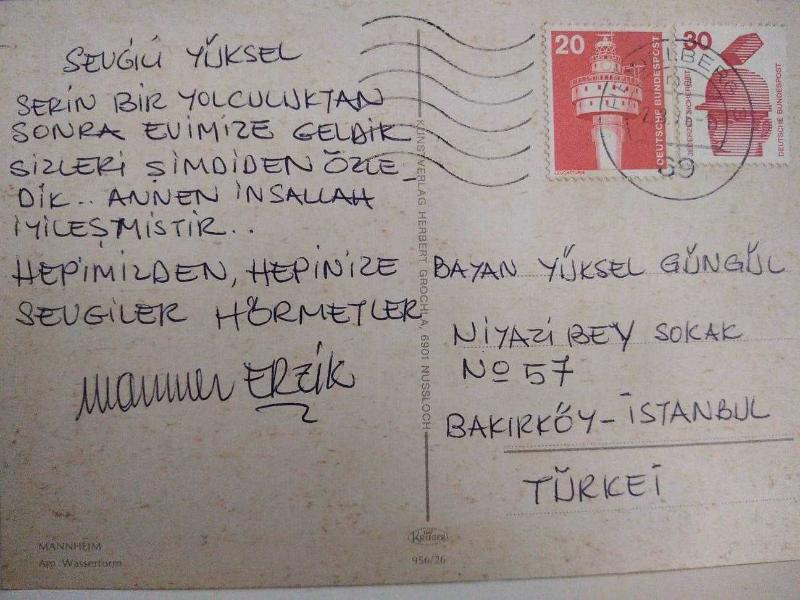 SEVGİLİ YÜKSEL
SERİN BİR YOLCULUKTAN
SONRA EVİMİZE GELDİK
SİZLERİ ŞİMDİDEN ÖZLE
DİK.. ANNEN İNSALLAH
İYİLEŞMİSTİR..
HEPİMİZDEN, HEPİNİZE
SEVGİLER HÖRMETLER
ERZİK
MANNHEIM
Am Wasserturm
KUNSTVERLAG HERBERT GROCHLA, 6901 NUSSLOCH
Krüger
956/26
20
DEUTSCHE BUNDESPOST
LEUCHTTURM
30
JEDERZEIT SICHERHEIT
DEUTSCHE BUNDESPOST
69
BAYAN YÜKSEL GÜNGÜL
NİYAZİ BEY SOKAK
No 57
BAKIRKÖY-İSTANBUL
TÜRKEİ